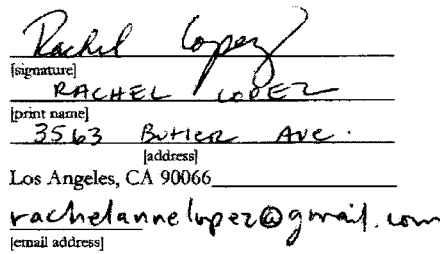 Rachel Lopez
[signature]
RACHEL LOPEZ
[print name]
3563 BUTLER AVE.
[address]
Los Angeles, CA 90066
rachelannelopez@gmail.com
[email address]